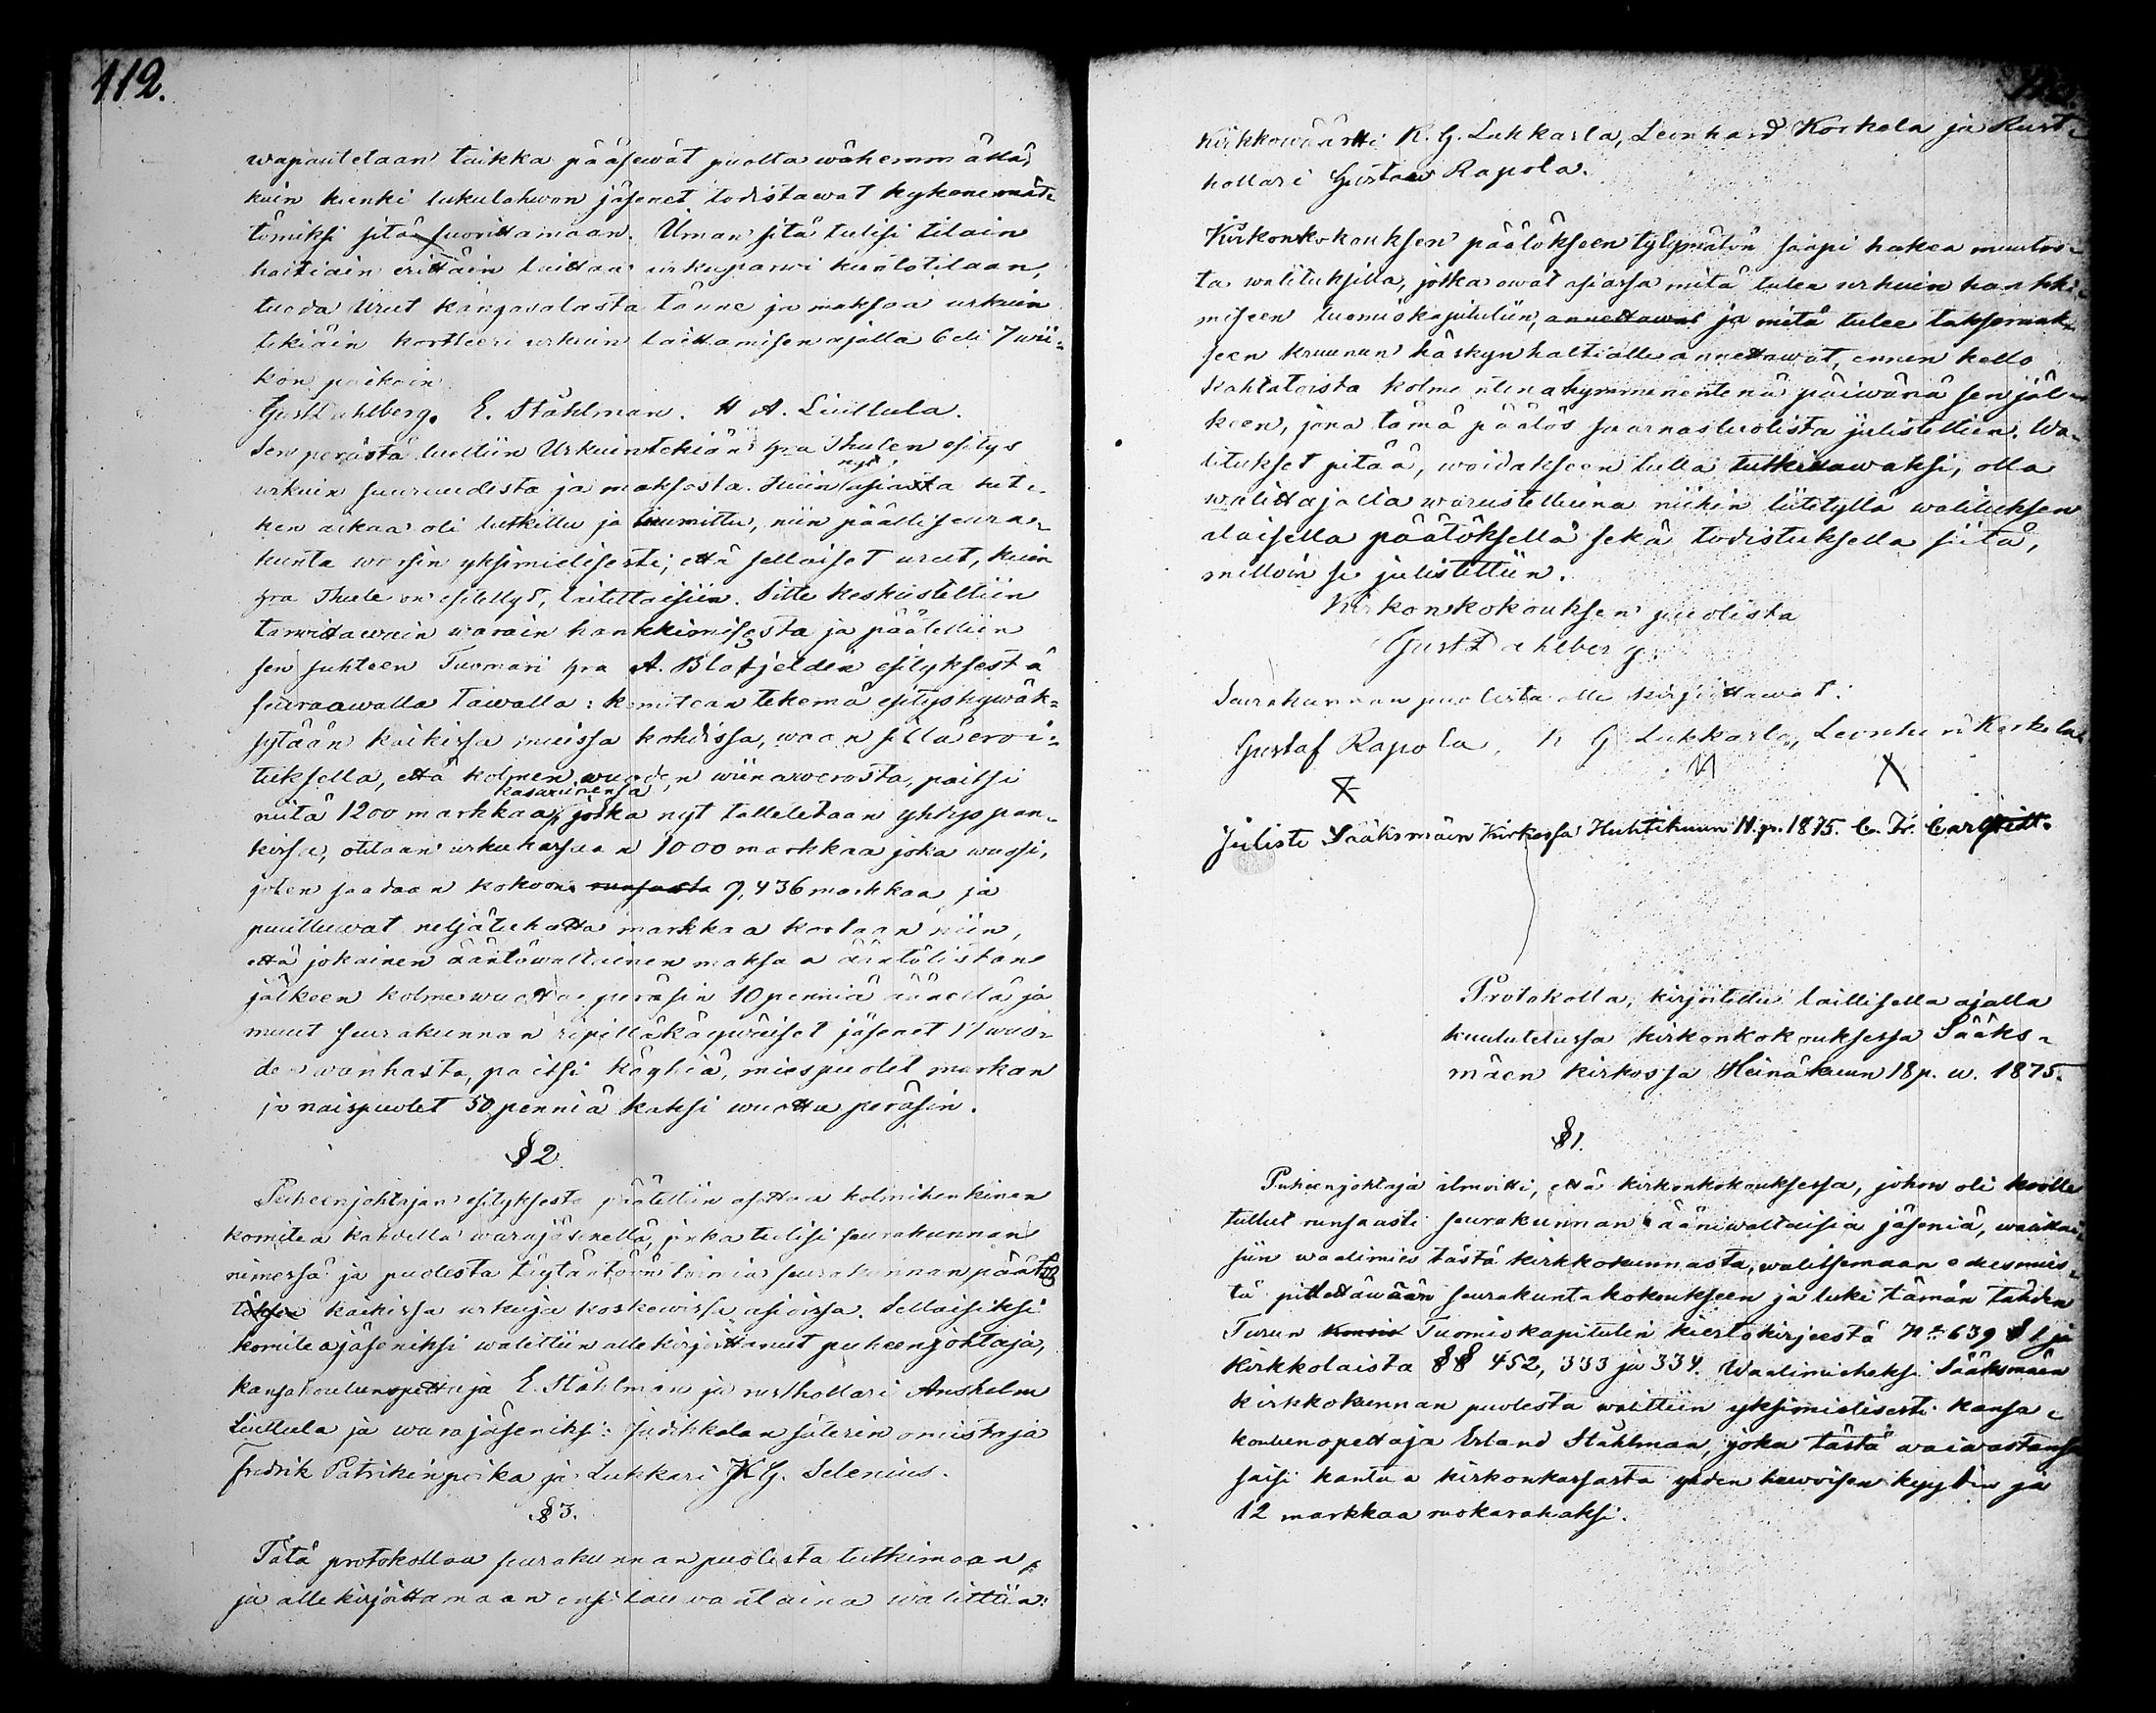 112.
wapautetaan taikka pääsewät puolta wähemmällä,
kuin kunki lukulahwon jäsenet todistawat kykenemät-
tömiksi sitä suorittamaan. Ilman sitä tulisi tilain
haltiain erittäin laittaa urkuparwi kuntotilaan,
tuoda Urut kangasalasta tänne ja maksaa urkuin
tekiäin kortteeri urkuin laittamisen ajalla 6 eli 7 wii-
kon paikoin.
Gust Dahlberg. E. Ståhlman. H A. Liuttula.
Sen perästä luettiin Urkuintekiän hra Thulen esitys
urkuin suuruudesta ja maksosta. Kuin nyt asiasta het-
ken aikaa oli tutkittu ja tuumittu, niin päätti seura-
kunta warsin yksimielisesti, että sellaiset urut, kuin
hra Thule on esitellyt, laitettaisiin. Sitte keskusteltiin
tarwittawain warain hankkimisesta ja päätettiin
sen suhteen Tuomari hra A. Blafjeldin esityksestä
seuraawalla tawalla: komitean tekemä esitys hywäk-
sytään kaikissa muissa kohdissa, waan sillä eroi-
tuksella, että kolmen wuoden wiinaweroista, paitsi
niitä 1200 markkaa kaswuinensa, jotka nyt talletetaan yhdyspan-
kissa, otetaan urkukassaan 1000 markkaa joka wuosi,
joten saadaan kokoon runsaasti 7,436 markkaa ja
puuttuwat neljätuhatta markkaa kootaan niin,
että jokainen ääntöwaltainen maksaa ääntölistan
jälkeen kolme wuotta peräsin 10 penniä ääneltä ja
muut seurakunnan ripilläkäywäiset jäsenet 17 wuo-
den wanhasta, paitsi köyhiä, miespuolet markan
ja naispuolet 50 penniä kaksi wuotta peräsin.
§ 2.
Puheenjohtajan esityksestä päätettiin asettaa kolmihenkinen
komitea kahdella warajäsenellä, jonka tulisi seurakunnan
nimessä ja puolesta täytäntöön toimia seurakunnan päätös
töksen kaikissa urkuja koskewissa asioissa. Sellaisiksi
komiteajäseniksi walittiin allekirjoittanut puheenjohtaja,
kansakoulunopettaja E. Ståhlman ja rusthollari Anshelm
Liuttula ja warajäseniksi: Judikkalan säterin omistaja
Fredrik Patrikinpoika ja Lukkari K G. Selenius.
§ 3.
Tätä protokollaa seurakunnan puolesta tutkimaan
ja allekirjoittamaan ensi lauwantaina walittiin:
Kirkkowäärtti K. G. Lukkarla, Leonhard Korkola ja Rust-
hollari Gustaw Rapola.
Kirkonkokouksen päätökseen tytymätön saapi hakea muutos-
ta walituksilla, jotka owat asiassa mitä tulee urkuin hankki-
miseen tuomiokapituliin, annettawat ja mitä tulee taksoimuk-
seen kruunun käskynhaltialle annettawat, ennen kello
kahtatoista kolmantenakymmenentenä päiwänä sen jäl-
keen, jona tämä päätös saarnastuolista julistettiin. Wa-
litukset pitää, woidakseen tulla tutkittawaksi, olla
walittajalta warustettuina niihin liitetyllä walituksen
alaisella päätöksellä sekä todistuksella siitä,
milloin se julistettiin.
Kirkonkokouksen puolista
Gust Dahlberg.
Seurakunnan puolesta alle kirjoittawat:
Gustaf Rapola, K G Lukkarla, Leonhard Korkola
Juliste Sääksmäen Kirkossa Huhtikuun 11. p. 1875. C. Fr. Carlstedt.
Protokolla, kirjoitettu laillisella ajalla
kuulutetussa kirkonkokouksessa Sääks-
mäen kirkossa Heinäkuun 18 p. w. 1875.
§ 1.
Puheenjohtaja ilmoitti, että kirkonkokouksessa, johon oli koolle
tullut runsaasti seurakunnan ääniwaltaisia jäseniä, walittai-
siin waalimies tästä kirkkokunnasta, walitsemaan edesmies-
tä pidettäwään seurakuntakokoukseen ja luki tämän tähden
Turun Konsis Tuomiokapitulin kiertokirjeestä N:o 639 § 1 ja
kirkkolaista §§ 452, 333 ja 334. Waalimieheksi Sääksmäen
kirkkokunnan puolesta walittiin yksimielisesti kansa-
koulunopettaja Erland Ståhlman, joka tästä waiwastansa
saisi kantaa kirkonkassasta yhden hewoisen kyydin ja
12 markkaa ruokarahaksi.